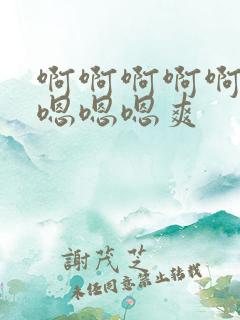 啊啊啊啊啊
嗯嗯嗯爽
謝茂芝
未经同意禁止转载